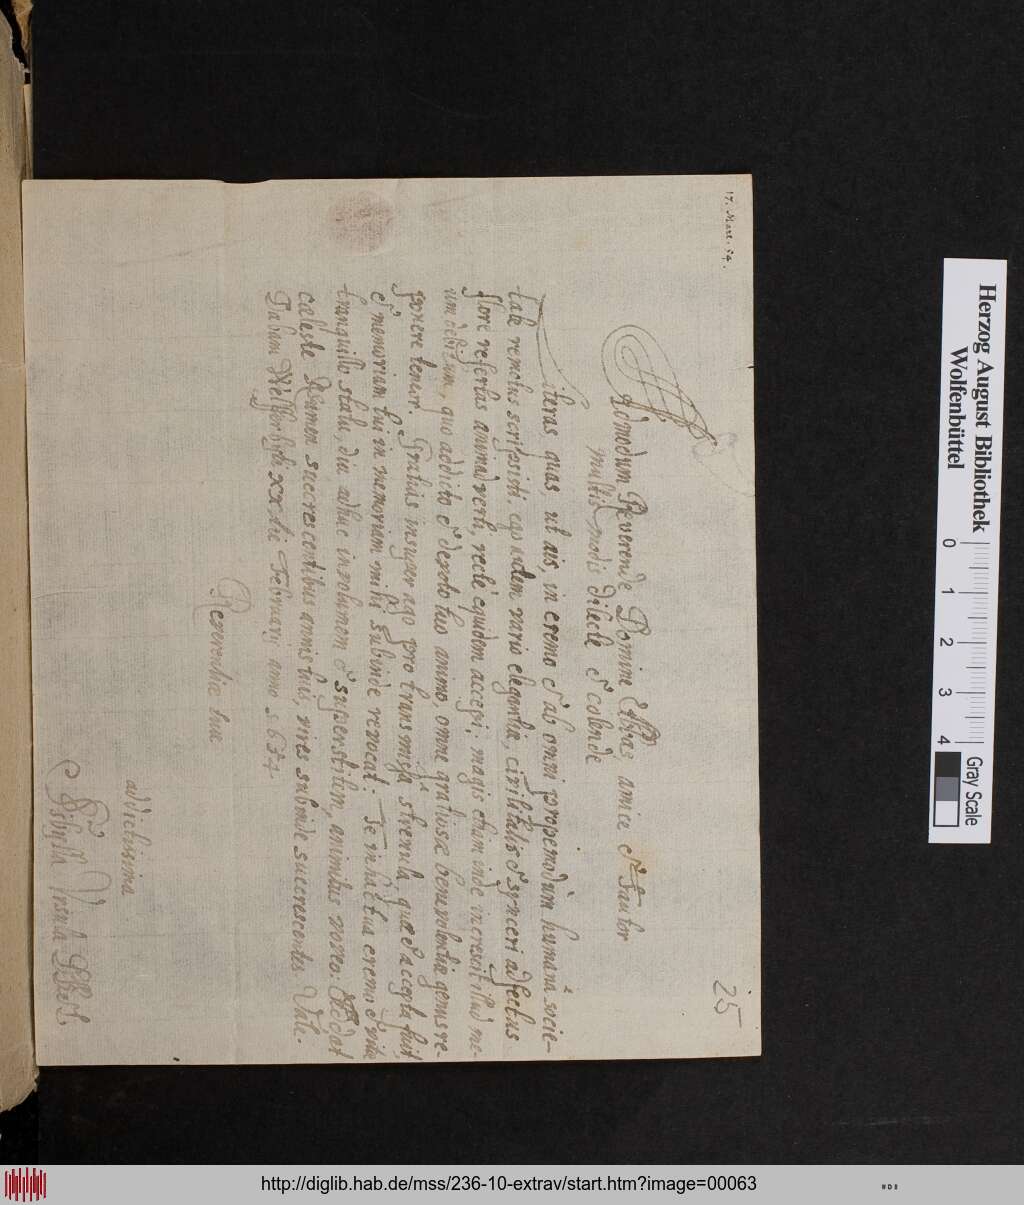 17. Mart. 54.
25
Admodum Reverende Domine Abbas, amice et Fautor
multis modis dilecte et colende
Literas, quas, ut ais, in eremo et ab omni propemodum humanâ socie-
tate remotus scripsisti ego autem vario elegantiæ, civilitatis et synceri adfectus
flore refertas animadverti, rectè equidem accepi; magis etiam inde increscit illud me-
um debitum, quo addicto et devoto tuo animo, omne gratiosæ benevolentiæ genus re-
ponere teneor. Gratias insuper ago pro transmissa strenula, quæ et accepta fuit
et memoriam tui in memoriam mihi subinde revocat. Te in hac tua eremo et vitæ
tranquillo statu, diu adhuc incolumem et superstitem, animitus voveo. Addat
cæleste Numen succrescentibus annis tuis, vires subinde succrescentes Vale.
Dabam xx die Februarij anno 1654.
Reverentiæ tuæ
addictissima
Sibylla Ursula
Herzog August Bibliothek
Wolfenbüttel
0 1 2 3 4
Gray Scale
http://diglib.hab.de/mss/236-10-extrav/start.htm?image=00063